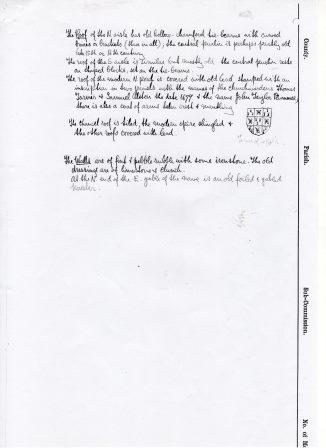 The Roof of the N aisle has old hollow-chamfered tie-beams with curved
braces or brackets (thus in all); the central purlin is perhaps partly old
late 15th or 16th century.
The roof of the S aisle is similar but mostly old the central purlin rests
on shaped blocks, set on the tie-beams.
The roof of the modern N porch is covered with old lead stamped with an
inscription in two panels with the names of the churchwardens Thomas
Turner & Samuel the date 1679 & the name John Taylor Plummer,
there is also a coat of arms
The chancel roof is tiled, the modern spire shingled &
the other roofs covered with lead.
The Walls are of flint & pebble rubble with some ironstone. The old
dressings are of limestone & clunch.
At the N end of the E. gable of the nave is an old foiled & gabled
County.
Parish.
Sub-Commission.
No. of